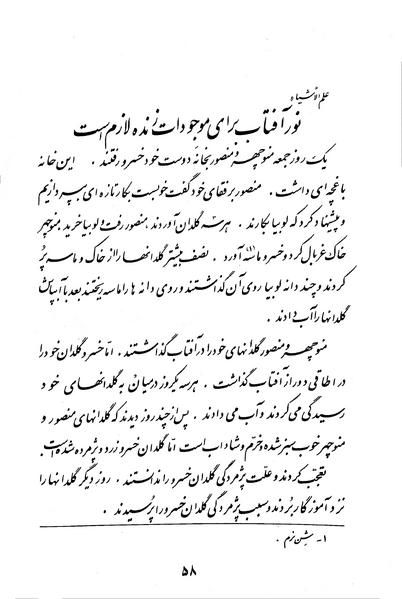 علم الاشیاء
نور آفتاب برای موجودات زنده لازم است
یک روز جمعه منوچهر و منصور بخانهٔ دوست خود خسرو رفتند . این خانه
باغچه‌ای داشت . منصور برفقای خود گفت خوبست بکار تازه‌ای بپردازیم
و پیشنهاد کرد که لوبیا بکارند . هر سه گلدان آوردند ، منصور رفت و لوبیا خرید . منوچهر
خاک غربال کرد و خسرو ماسه (۱) آورد . نصف بیشتر گلدانها را از خاک و ماسه پر
کردند و چند دانه لوبیا روی آن گذاشتند و روی دانه‌ها را ماسه ریختند بعد با آبپاش
گلدانها را آب دادند .
منوچهر و منصور گلدانهای خود را در آفتاب گذاشتند . امّا خسرو گلدان خود را
در اطاقی دور از آفتاب گذاشت . هر سه یکروز در میان به گلدانهای خود
رسیدگی می کردند و آب می دادند . پس از چند روز دیدند که گلدانهای منصور و
منوچهر خوب سبز شده و خرّم و شاداب است امّا گلدان خسرو زرد و پژمرده شده است .
تعجّب کردند و علّت پژمردگی گلدان خسرو را ندانستند . روز دیگر گلدانها را
نزد آموزگار بردند و سبب پژمردگی گلدان خسرو را پرسیدند .
۱- شن نرم .
۵۸